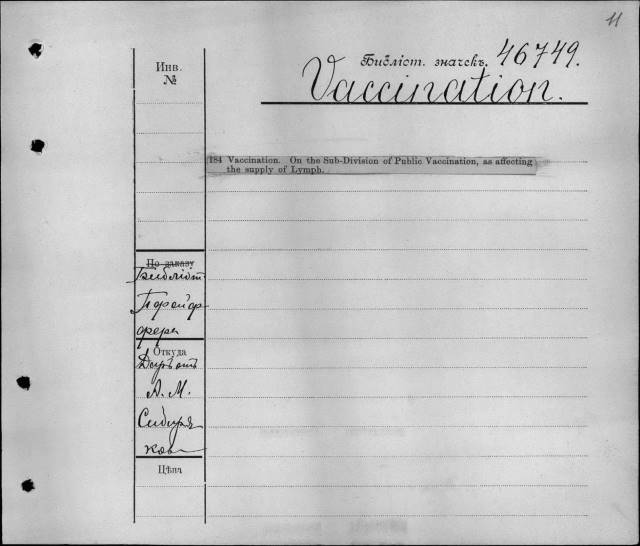 11
Библіот. значекъ. 46749.
Инв.
№
Vaccination.
184 Vaccination. On the Sub-Division of Public Vaccination, as affecting
the supply of Lymph.
По заказу
Библіот.
Пфейф-
фера
Откуда
Даръ отъ
А. М.
Сибиря-
кова
Цѣна